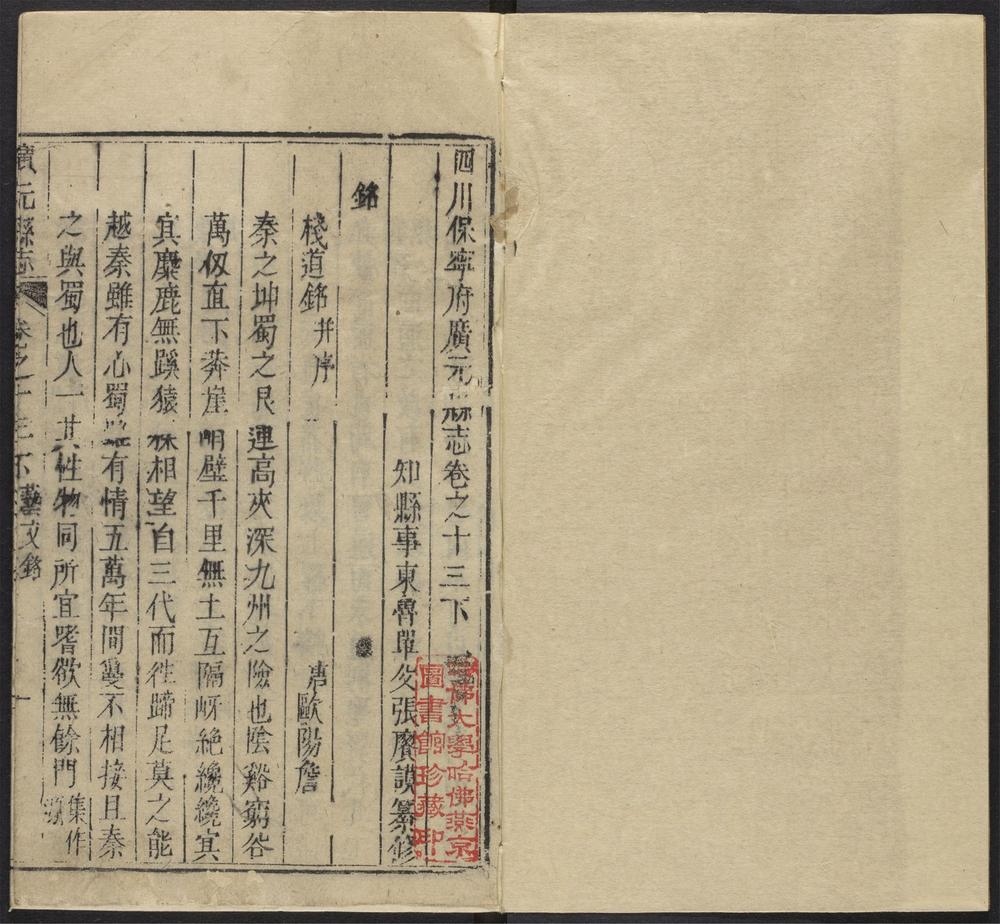 四川保寧府廣元縣志卷之十三下
知縣事東魯單父張賡謨纂修
銘
棧道銘并序 唐歐陽詹
秦之坤蜀之艮連高夾深九州之險也陰谿窮谷
萬仭直下莽崖峭壁千里無土互隔岈絶纔纔冥
冥麋鹿無蹊猿猱相望自三代而徃蹄足莫之能
越秦雖有心蜀雖有情五萬年間敻不相接且秦
之與蜀也人一其性物同所宜嗜欲無餘門集作源
廣元縣志 卷之十三下 藝文銘 一
哈佛大學哈佛燕京
圖書館珍藏印